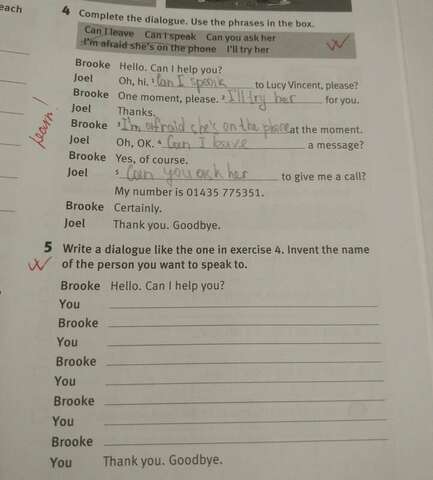 each
4 Complete the dialogue. Use the phrases in the box.
Can I leave Can I speak Can you ask her
I'm afraid she's on the phone I'll try her
Brooke Hello. Can I help you?
Joel Oh, hi. 1 Can I speak to Lucy Vincent, please?
Brooke One moment, please. 2 I'll try her for you.
Joel Thanks.
Brooke 3 I'm afraid she's on the phone at the moment.
Joel Oh, OK. 4 Can I leave a message?
Brooke Yes, of course.
Joel 5 Can you ask her to give me a call?
My number is 01435 775351.
Brooke Certainly.
Joel Thank you. Goodbye.
learn!
5 Write a dialogue like the one in exercise 4. Invent the name
of the person you want to speak to.
Brooke Hello. Can I help you?
You
Brooke
You
Brooke
You
Brooke
You
Brooke
You Thank you. Goodbye.